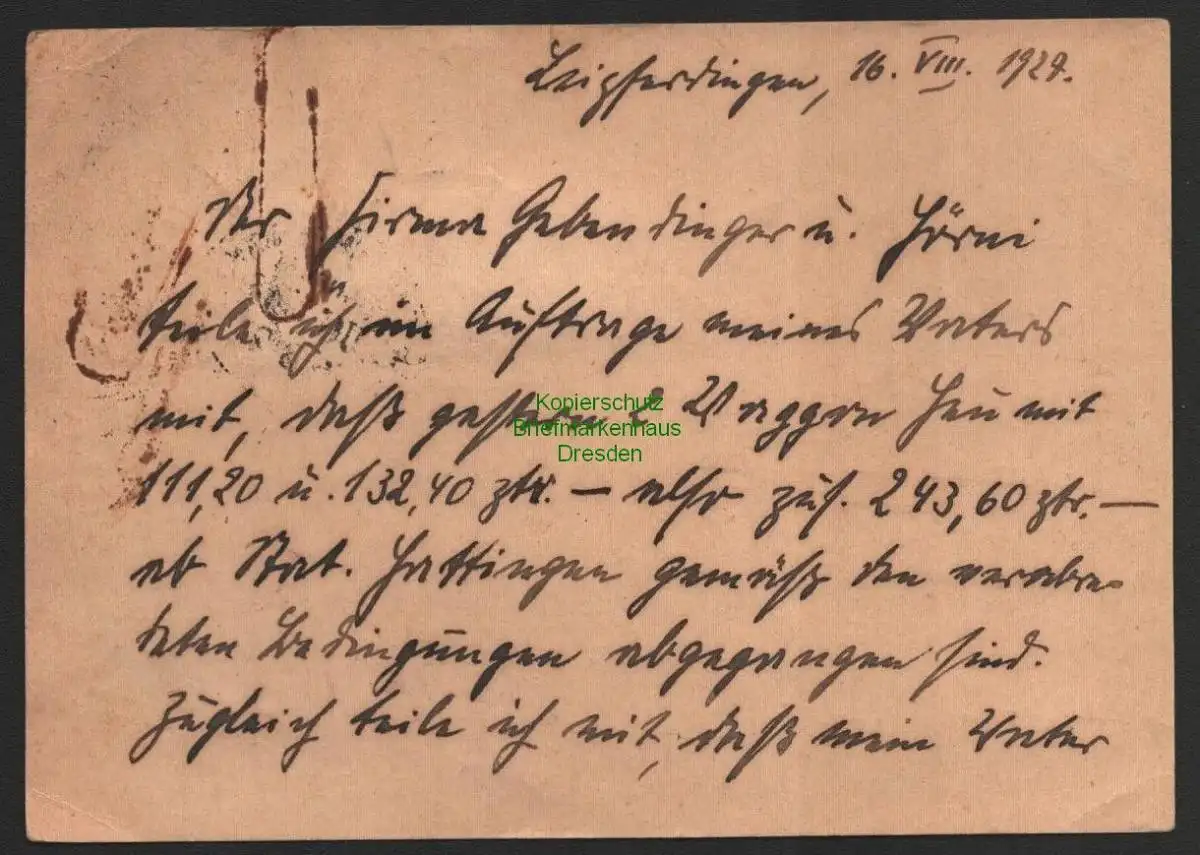 Leipferdingen, 16. VIII. 1929.
Der Firma Gebendinger u. Hörni
teile ich im Auftrage meines Vaters
mit, daß gestern 2 Waggon Heu mit
111,20 u. 132,40 ztr. — also zus. 243,60 ztr. —
ab Stat. Hattingen gemäß den verabre-
deten Bedingungen abgegangen sind.
Zugleich teile ich mit, daß mein Vater
Kopierschutz
Briefmarkenhaus
Dresden